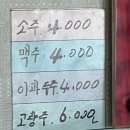 소주 4.000
맥주 4.000
이과두주 4.000
고량주 6.000